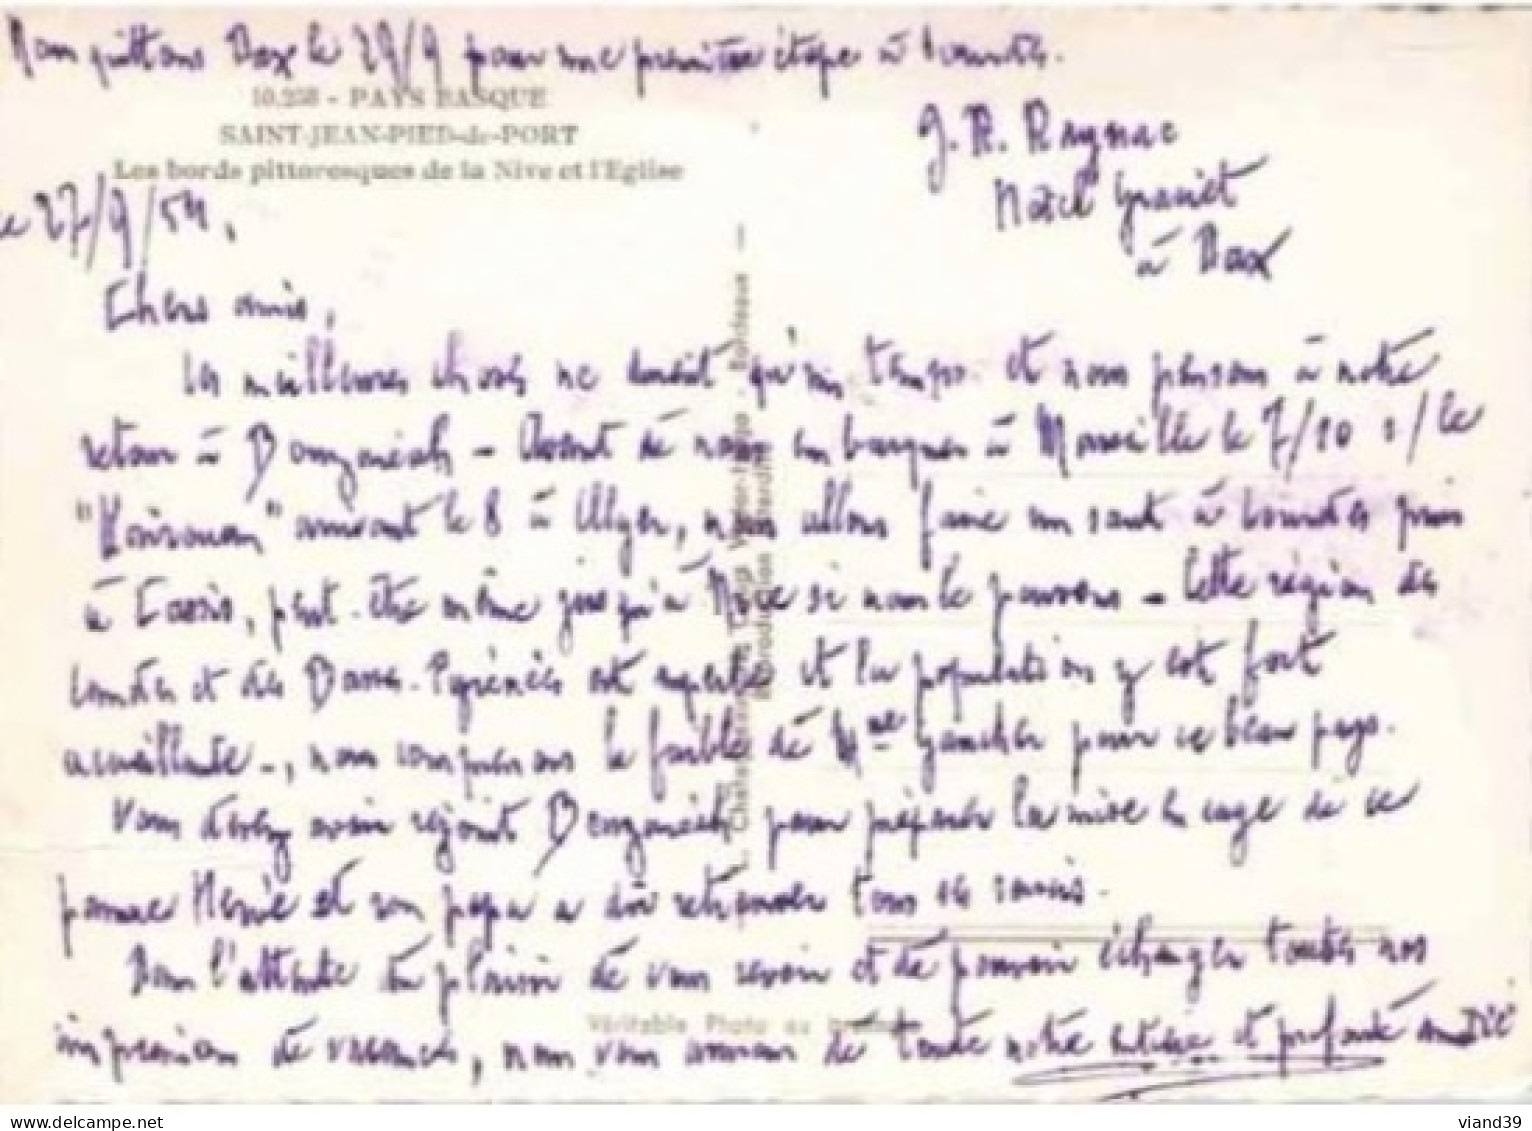 Nous quittons Dax le 29/9 pour une première étape à Lourdes.
10.258 - PAYS BASQUE
SAINT-JEAN-PIED-de-PORT
Les bords pittoresques de la Nive et l'Eglise
J. R. Raynac
Hôtel Graciet
à Dax
le 27/9/54.
Chers amis,
Les meilleures choses ne durent qu'un temps et nous pensons à notre
retour à Bouzaréah - Avant de nous embarquer à Marseille le 7/10 s/ le
"Kairouan" arrivant le 8 à Alger, nous allons faire un saut à Lourdes puis
à Paris, peut-être même jusqu'à Nice si nous le pouvons - Cette région des
Landes et des Basses-Pyrénées est superbe et la population y est fort
accueillante -, nous comprenons le faible de Mme Gaucher pour ce beau pays.
Vous devez avoir rejoint Bouzaréah pour préparer la mise en cage de ce
pauvre Hervé et son papa a dû retrouver tous ses soucis.
Dans l'attente du plaisir de vous revoir et de pouvoir échanger toutes nos
impressions de vacances, nous vous assurons de toute notre entière et profonde amitié
Véritable Photo au bromure
Reproduction Interdite
Bordeaux
viand39